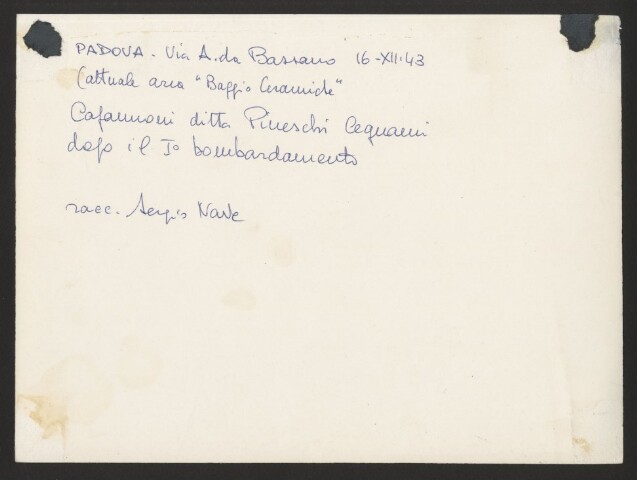 PADOVA - Via A. da Bassano 16-XII-43
(attuale area "Baggio Ceramiche"
Capannoni ditta Pineschi Legnami
dopo il Iº bombardamento
racc. Sergio Nave